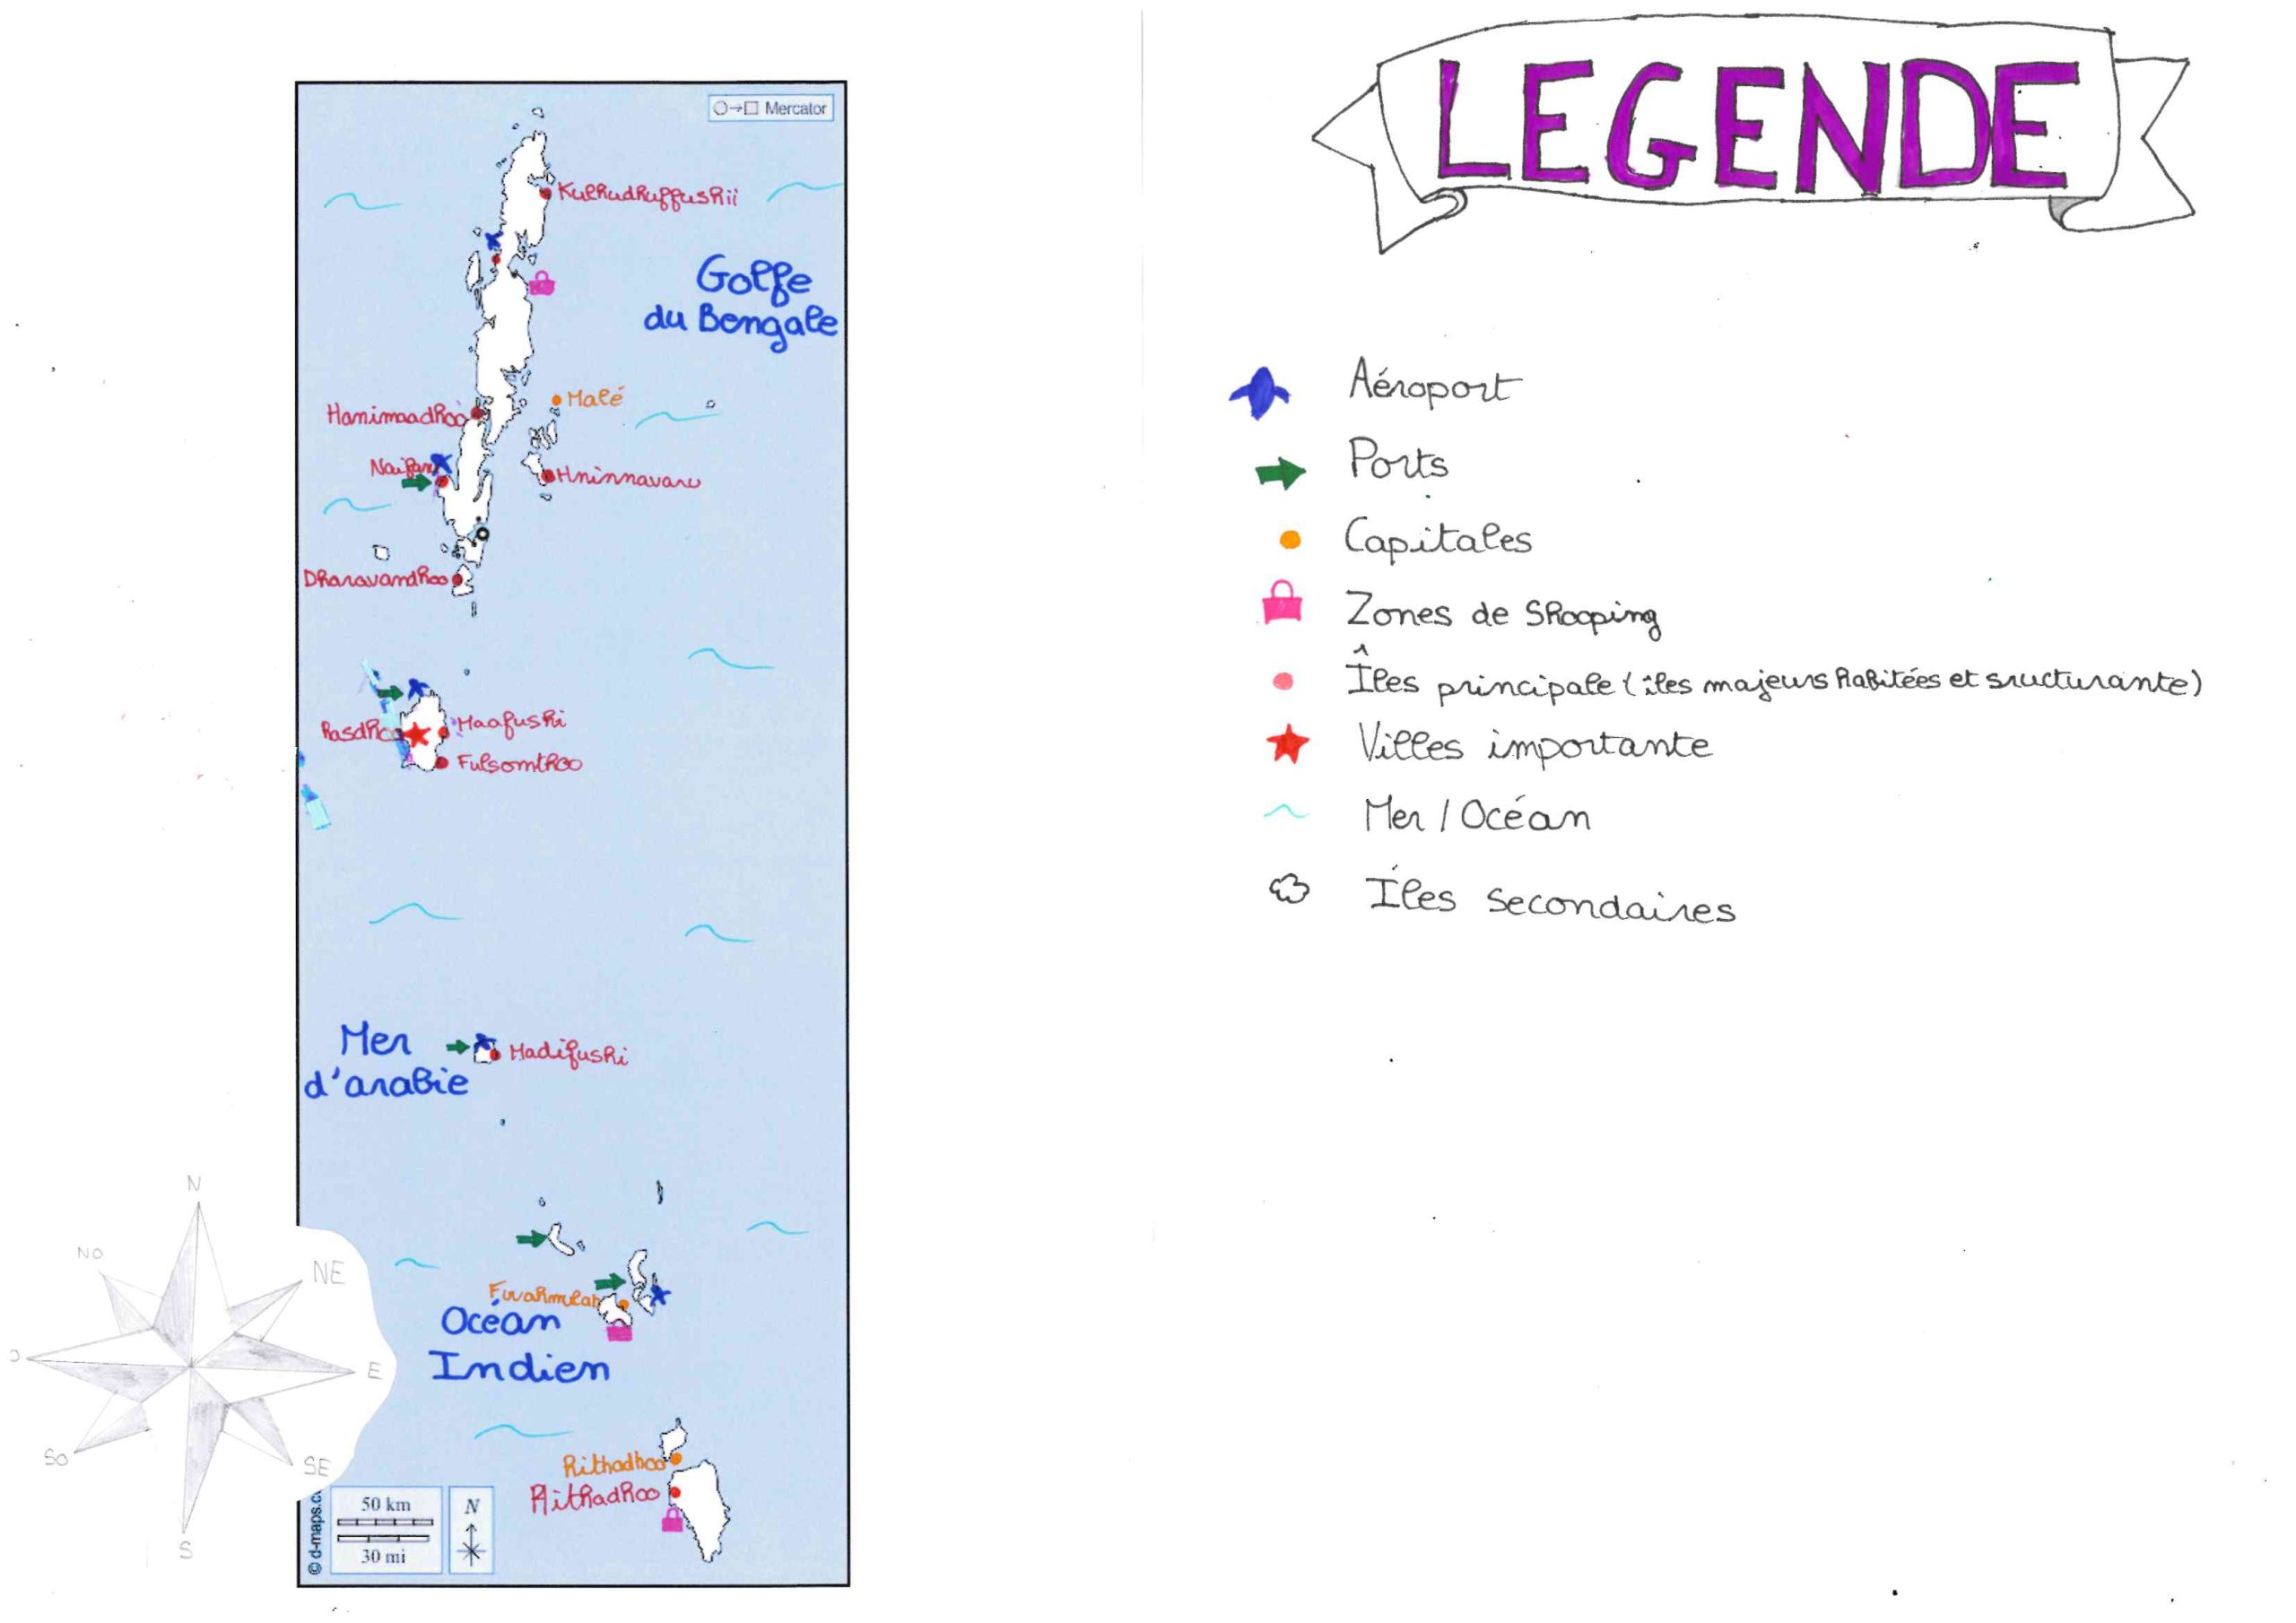 Mercator
Kulhudhuffushii
Golfe
du Bengale
Malé
Hanimaadhoo
Naifaru
Hninnavaru
Dharavandhoo
Rasdhoo
Maafushi
Fulsomthoo
Mer
d'arabie
Madifushi
Fuvahmulah
Océan
Indien
Rithadhoo
Rithadhoo
50 km
30 mi
N
N
NO
NE
E
SO
SE
S
LEGENDE
Aéroport
Ports
Capitales
Zones de Shooping
Îles principale (îles majeurs habitées et sructurante)
Villes importante
Mer / Océan
Îles secondaires